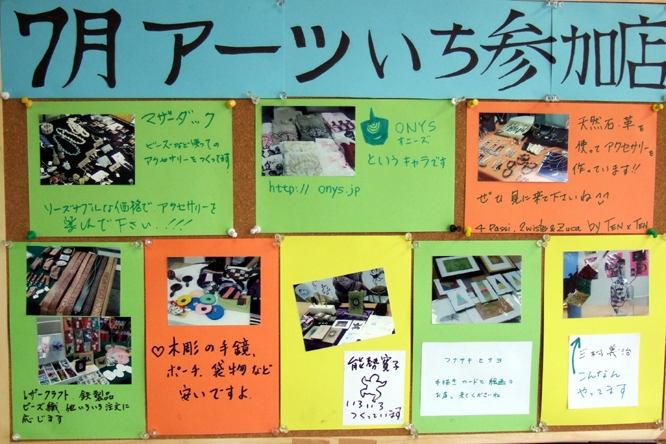 7月 アーツいち参加店
マザーダック
ビーズなど使っての
アクセサリーをつくってます
リーズナブルな価格でアクセサリーを
楽しんで下さい、!!!!
ONYS
オニーズ
というキャラです
http://onys.jp
天然石、革を
使ってアクセサリーを
作っています!!
ぜひ見に来て下さいね
by TEN×TEN
レザークラフト 鉄製品
ビーズ織 他いろいろ注文に
応じます
♡木彫の手鏡、
ポーチ、袋物など
安いですよ
能勢寛子
いろいろ
つくっています
フナサキ ヒサヨ
手描きカードと絵画
お直、来てくださいね
こんなん
やってます